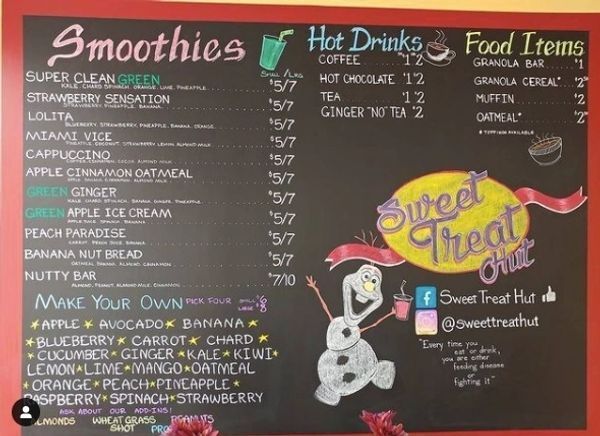 Smoothies
SMALL / LRG
SUPER CLEAN GREEN $5/7
KALE, CHARD SPINACH, ORANGE, LIME, PINEAPPLE
STRAWBERRY SENSATION $5/7
STRAWBERRY, PINEAPPLE, BANANA
LOLITA $5/7
BLUEBERRY, STRAWBERRY, PINEAPPLE, BANANA, ORANGE
MIAMI VICE $5/7
PINEAPPLE, COCONUT, STRAWBERRY, LEMON, ALMOND MILK
CAPPUCCINO $5/7
COFFEE, CINNAMON, COCOA, ALMOND MILK
APPLE CINNAMON OATMEAL $5/7
APPLE, BANANA, CINNAMON, ALMOND MILK
GREEN GINGER $5/7
KALE, CHARD, SPINACH, BANANA, GINGER
GREEN APPLE ICE CREAM $5/7
APPLE JUICE, SPINACH, BANANA
PEACH PARADISE $5/7
CARROT, PEACH, BANANA
BANANA NUT BREAD $5/7
OATMEAL, BANANA, ALMOND, CINNAMON
NUTTY BAR $7/10
ALMOND, PEANUT, ALMOND MILK, CINNAMON
MAKE YOUR OWN PICK FOUR SMALL $6
LARGE $8
APPLE AVOCADO BANANA
BLUEBERRY CARROT CHARD
CUCUMBER GINGER KALE KIWI
LEMON LIME MANGO OATMEAL
ORANGE PEACH PINEAPPLE
RASPBERRY SPINACH STRAWBERRY
ASK ABOUT OUR ADD-INS!
ALMONDS WHEAT GRASS PEANUTS
SHOT
Hot Drinks
COFFEE $1 $2
HOT CHOCOLATE $1 $2
TEA $1 $2
GINGER "NO" TEA $2
Food Items
GRANOLA BAR $1
GRANOLA CEREAL* $2
MUFFIN $2
OATMEAL* $2
* TOPPINGS AVAILABLE
Sweet
Treat
Hut
f Sweet Treat Hut
@sweettreathut
"Every time you
eat or drink,
you are either
feeding disease
or
fighting it"